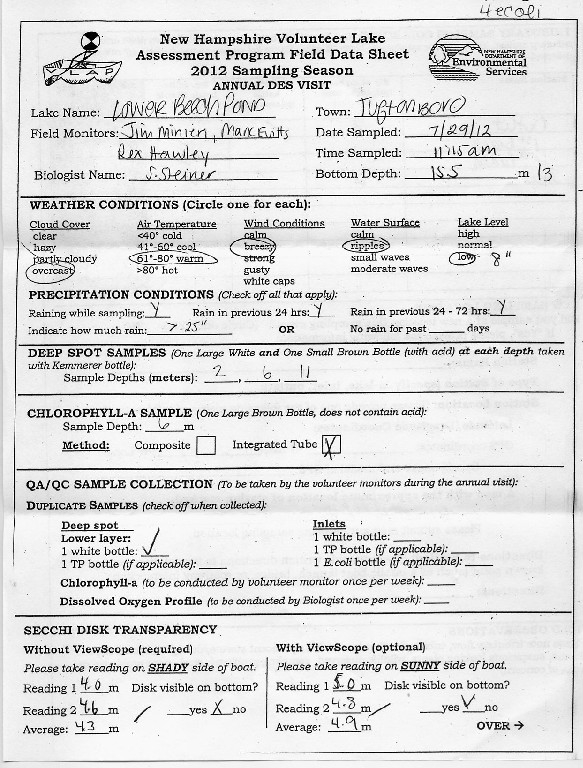 4 ecoli
VLAP
New Hampshire Volunteer Lake
Assessment Program Field Data Sheet
2012 Sampling Season
ANNUAL DES VISIT
NEW HAMPSHIRE
DEPARTMENT OF
Environmental
Services
Lake Name: Lower Beech Pond Town: Tuftonboro
Field Monitors: Jim Minieri, Mark Date Sampled: 7/29/12
Rex Hawley Time Sampled: 11:15 am
Biologist Name: S. Steiner Bottom Depth: 15.5 m 13
WEATHER CONDITIONS (Circle one for each):
Cloud Cover Air Temperature Wind Conditions Water Surface Lake Level
clear <40° cold calm calm high
hazy 41°-60° cool breezy ripples normal
partly cloudy 61°-80° warm strong small waves low 8"
overcast >80° hot gusty moderate waves
white caps
PRECIPITATION CONDITIONS (Check off all that apply):
Raining while sampling: Y Rain in previous 24 hrs: Y Rain in previous 24 - 72 hrs: Y
Indicate how much rain: >.25" OR No rain for past ____ days
DEEP SPOT SAMPLES (One Large White and One Small Brown Bottle (with acid) at each depth taken
with Kemmerer bottle):
Sample Depths (meters): 2, 6, 11
CHLOROPHYLL-A SAMPLE (One Large Brown Bottle, does not contain acid):
Sample Depth: 6 m
Method: Composite Integrated Tube X
QA/QC SAMPLE COLLECTION (To be taken by the volunteer monitors during the annual visit):
DUPLICATE SAMPLES (check off when collected):
Deep spot Inlets
Lower layer: 1 white bottle: ____
1 white bottle: ✓ 1 TP bottle (if applicable): ____
1 TP bottle (if applicable): ____ 1 E.coli bottle (if applicable): ____
Chlorophyll-a (to be conducted by volunteer monitor once per week): ____
Dissolved Oxygen Profile (to be conducted by Biologist once per week): ____
SECCHI DISK TRANSPARENCY
Without ViewScope (required) With ViewScope (optional)
Please take reading on SHADY side of boat. Please take reading on SUNNY side of boat.
Reading 1 4.0 m Disk visible on bottom? Reading 1 5.0 m Disk visible on bottom?
Reading 2 4.6 m ____yes X no Reading 2 4.8 m ____yes ✓ no
Average: 4.3 m Average: 4.9 m OVER →